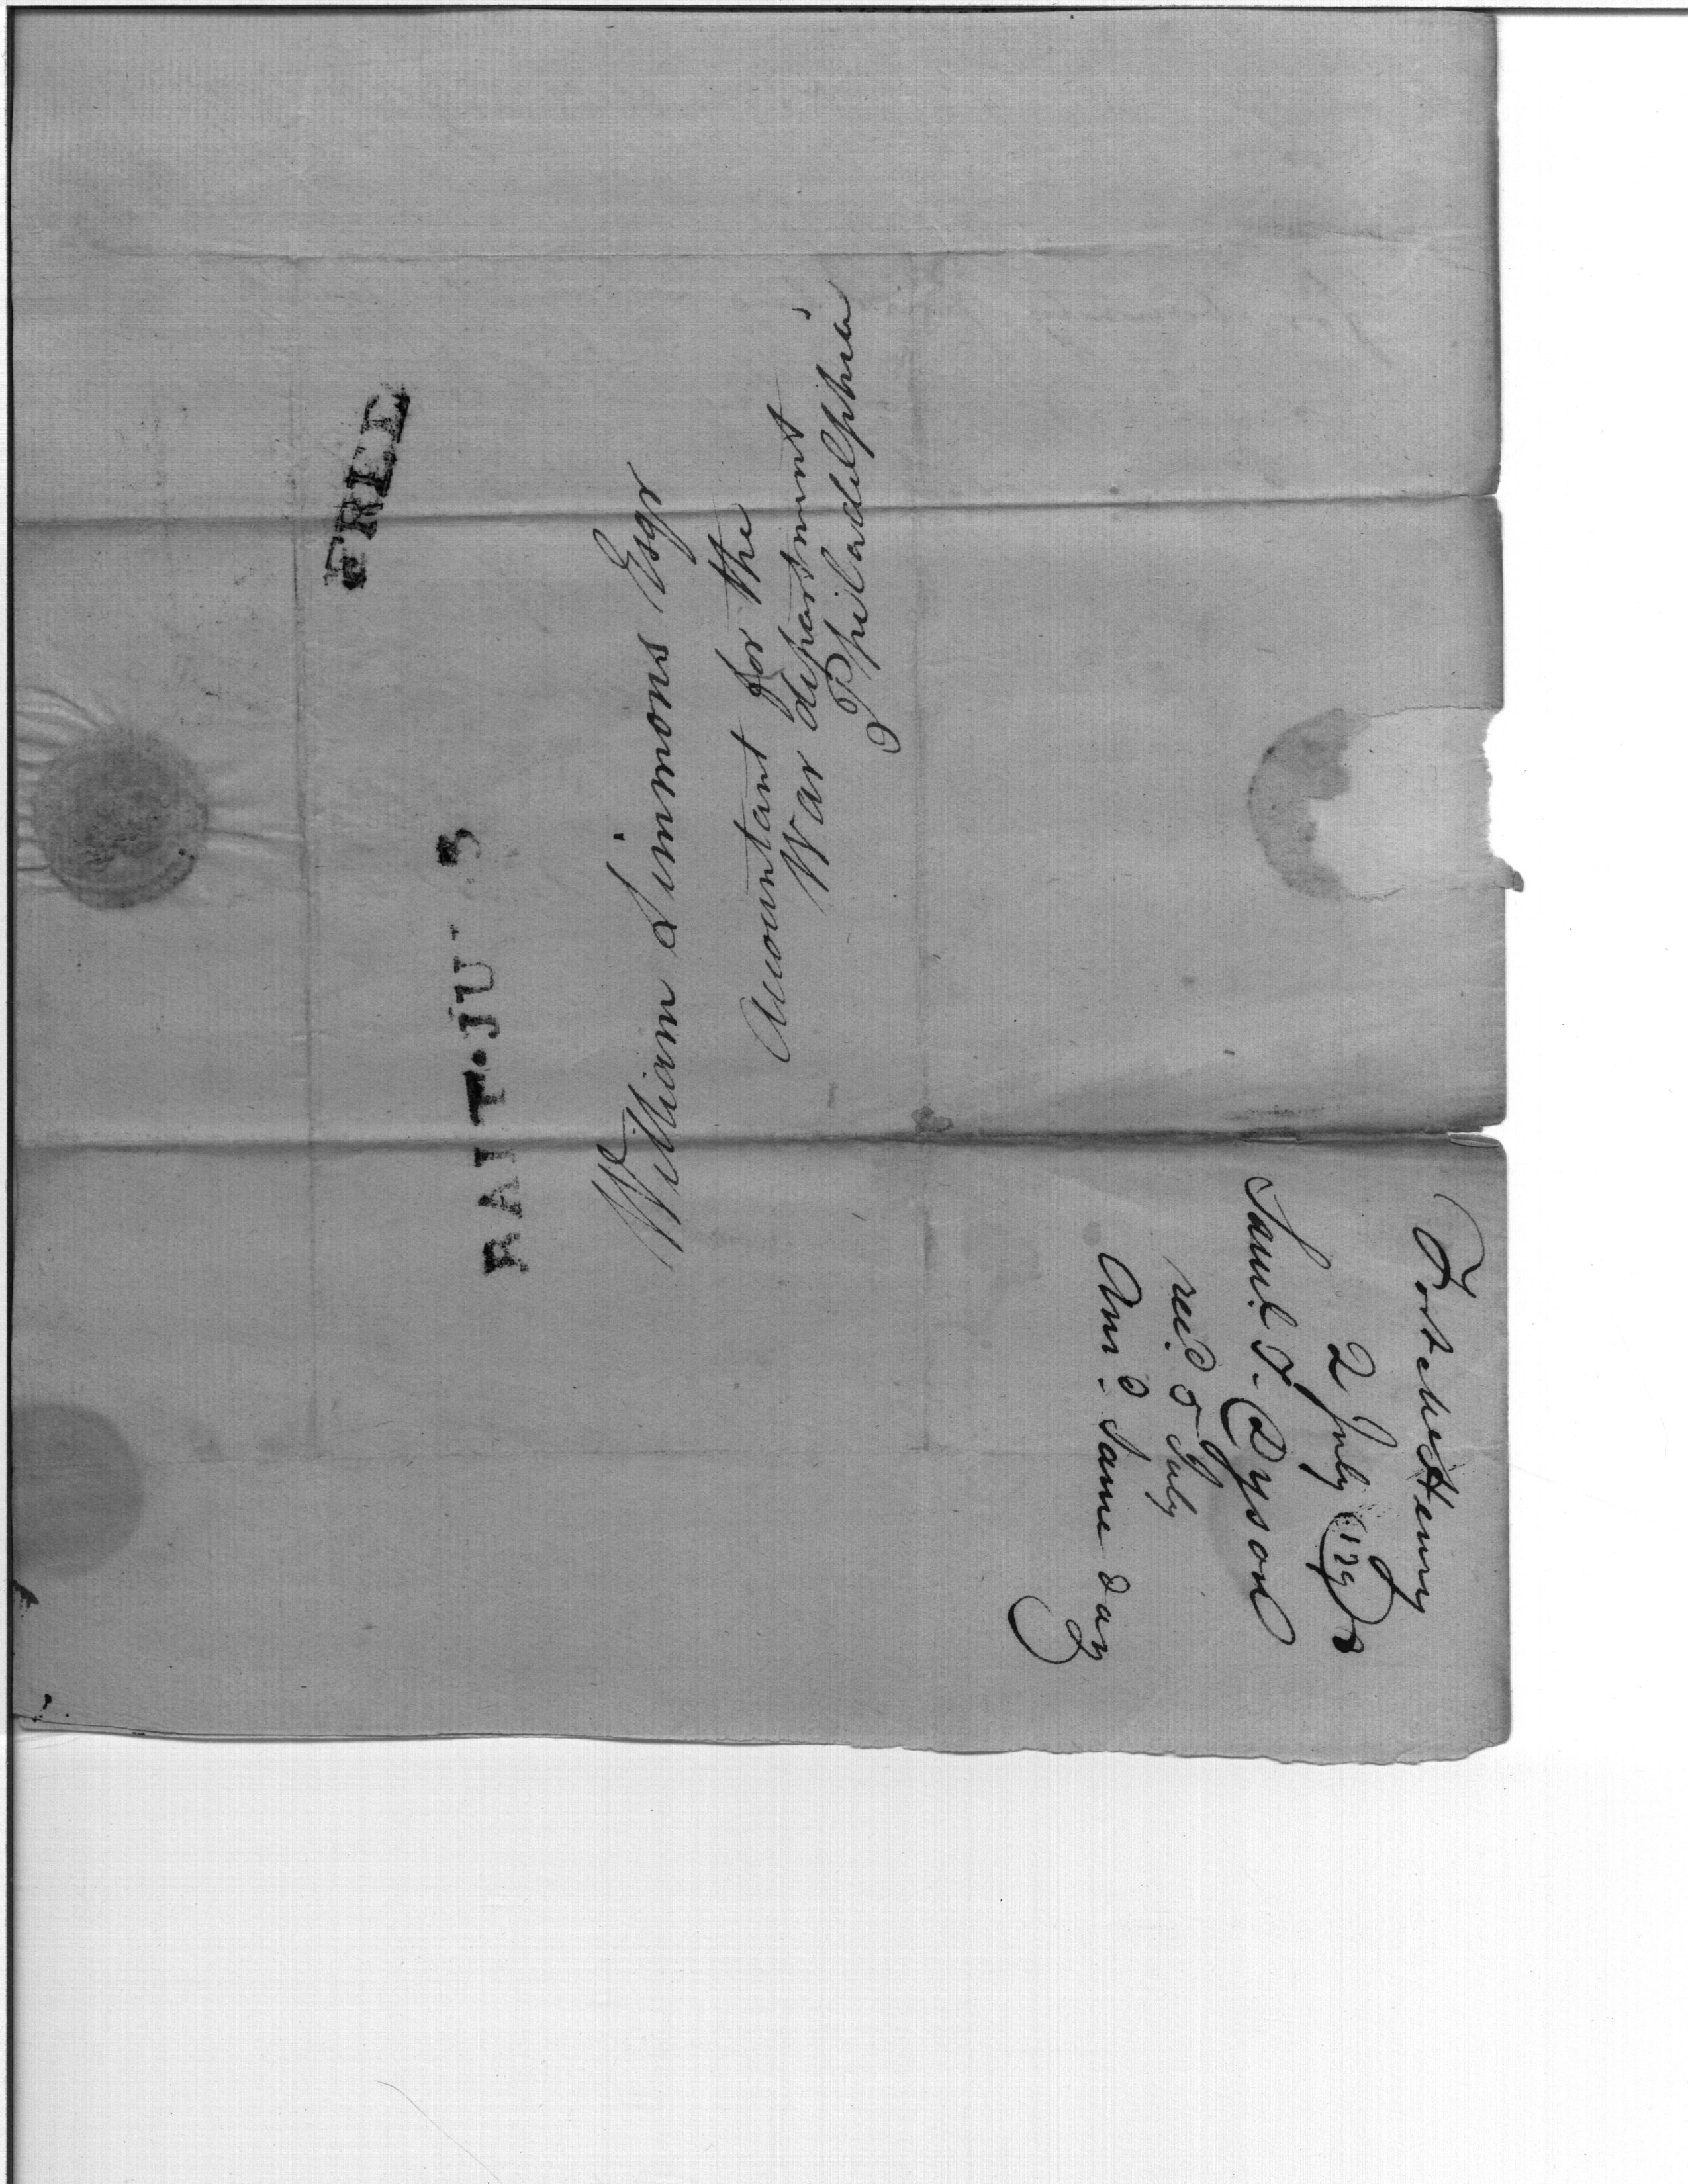 FREE
BALT·JU 3
William Simmons Esqr
Accountant for the
War department
Philadelphia
Fort McHenry
2 July 1798
Saml. T. Dyson
recd. 5 July
Ansd. Same day